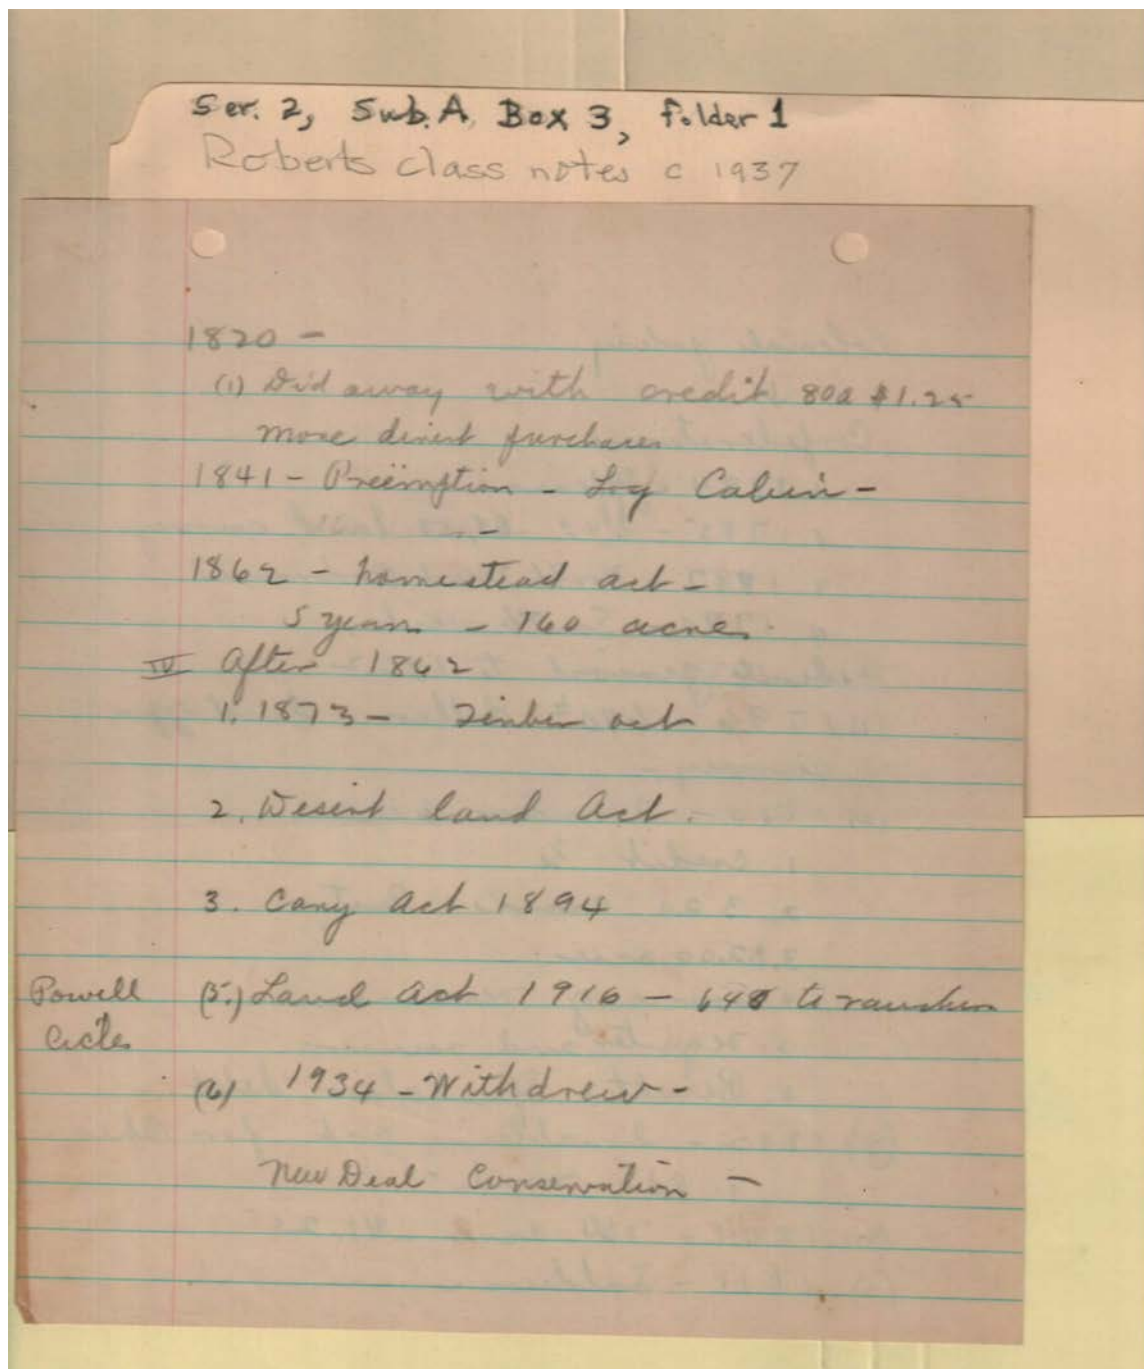 Ser. 2, Sub.A, Box 3, folder 1
Roberts class notes c 1937
1820 -
(1) Did away with credit 80a $1.25
More direct purchases
1841 - Preëmption - Log Cabin -
1862 - homestead act -
5 years - 160 acres.
IV After 1862
1. 1873 - Timber act
2. Desert land Act.
3. Cary Act 1894
Powell (5.) Land Act 1916 - 640 to ranchers
(6) 1934 - Withdrew -
New Deal Conservation -